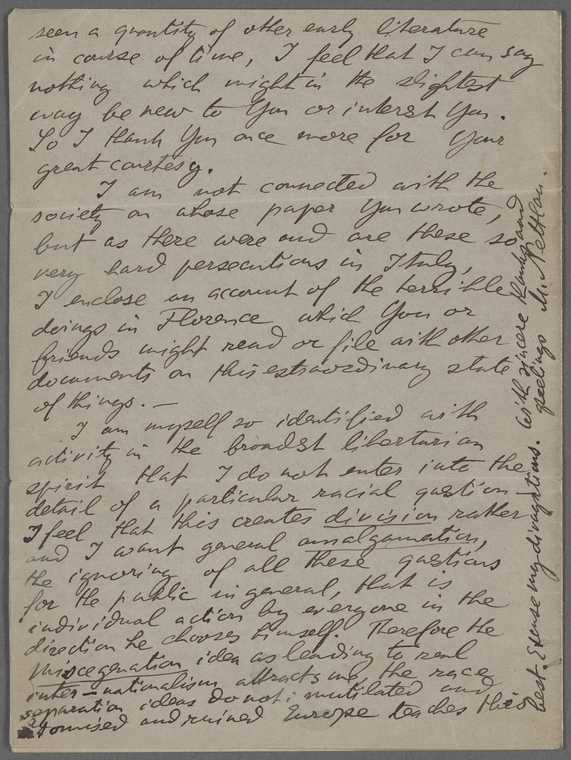 seen a quantity of other early literature
in course of time, I feel that I can say
nothing which might in the slightest
way be new to you or interest you.
So I thank you once more for your
great courtesy.
I am not connected with the
society on whose paper you wrote,
but as there were and are these so
very hard persecutions in Italy,
I enclose an account of the terrible
doings in Florence which you or
friends might read or file with other
documents on this extraordinary state
of things. —
I am myself so identified with
activity in the broadest libertarian
spirit that I do not enter into the
detail of a particular racial question
I feel that this creates division rather
and I want general amalgamation,
the ignoring of all these questions
for the public in general, that is
individual action by everyone in the
direction he chooses himself. Therefore the
miscegenation idea as leading to real
inter-nationalism attracts me, the race
separation ideas do not; mutilated and
atomised and ruined Europe teaches this
best. Excuse my divagations. With sincere thanks and
greetings M. Nettlau.